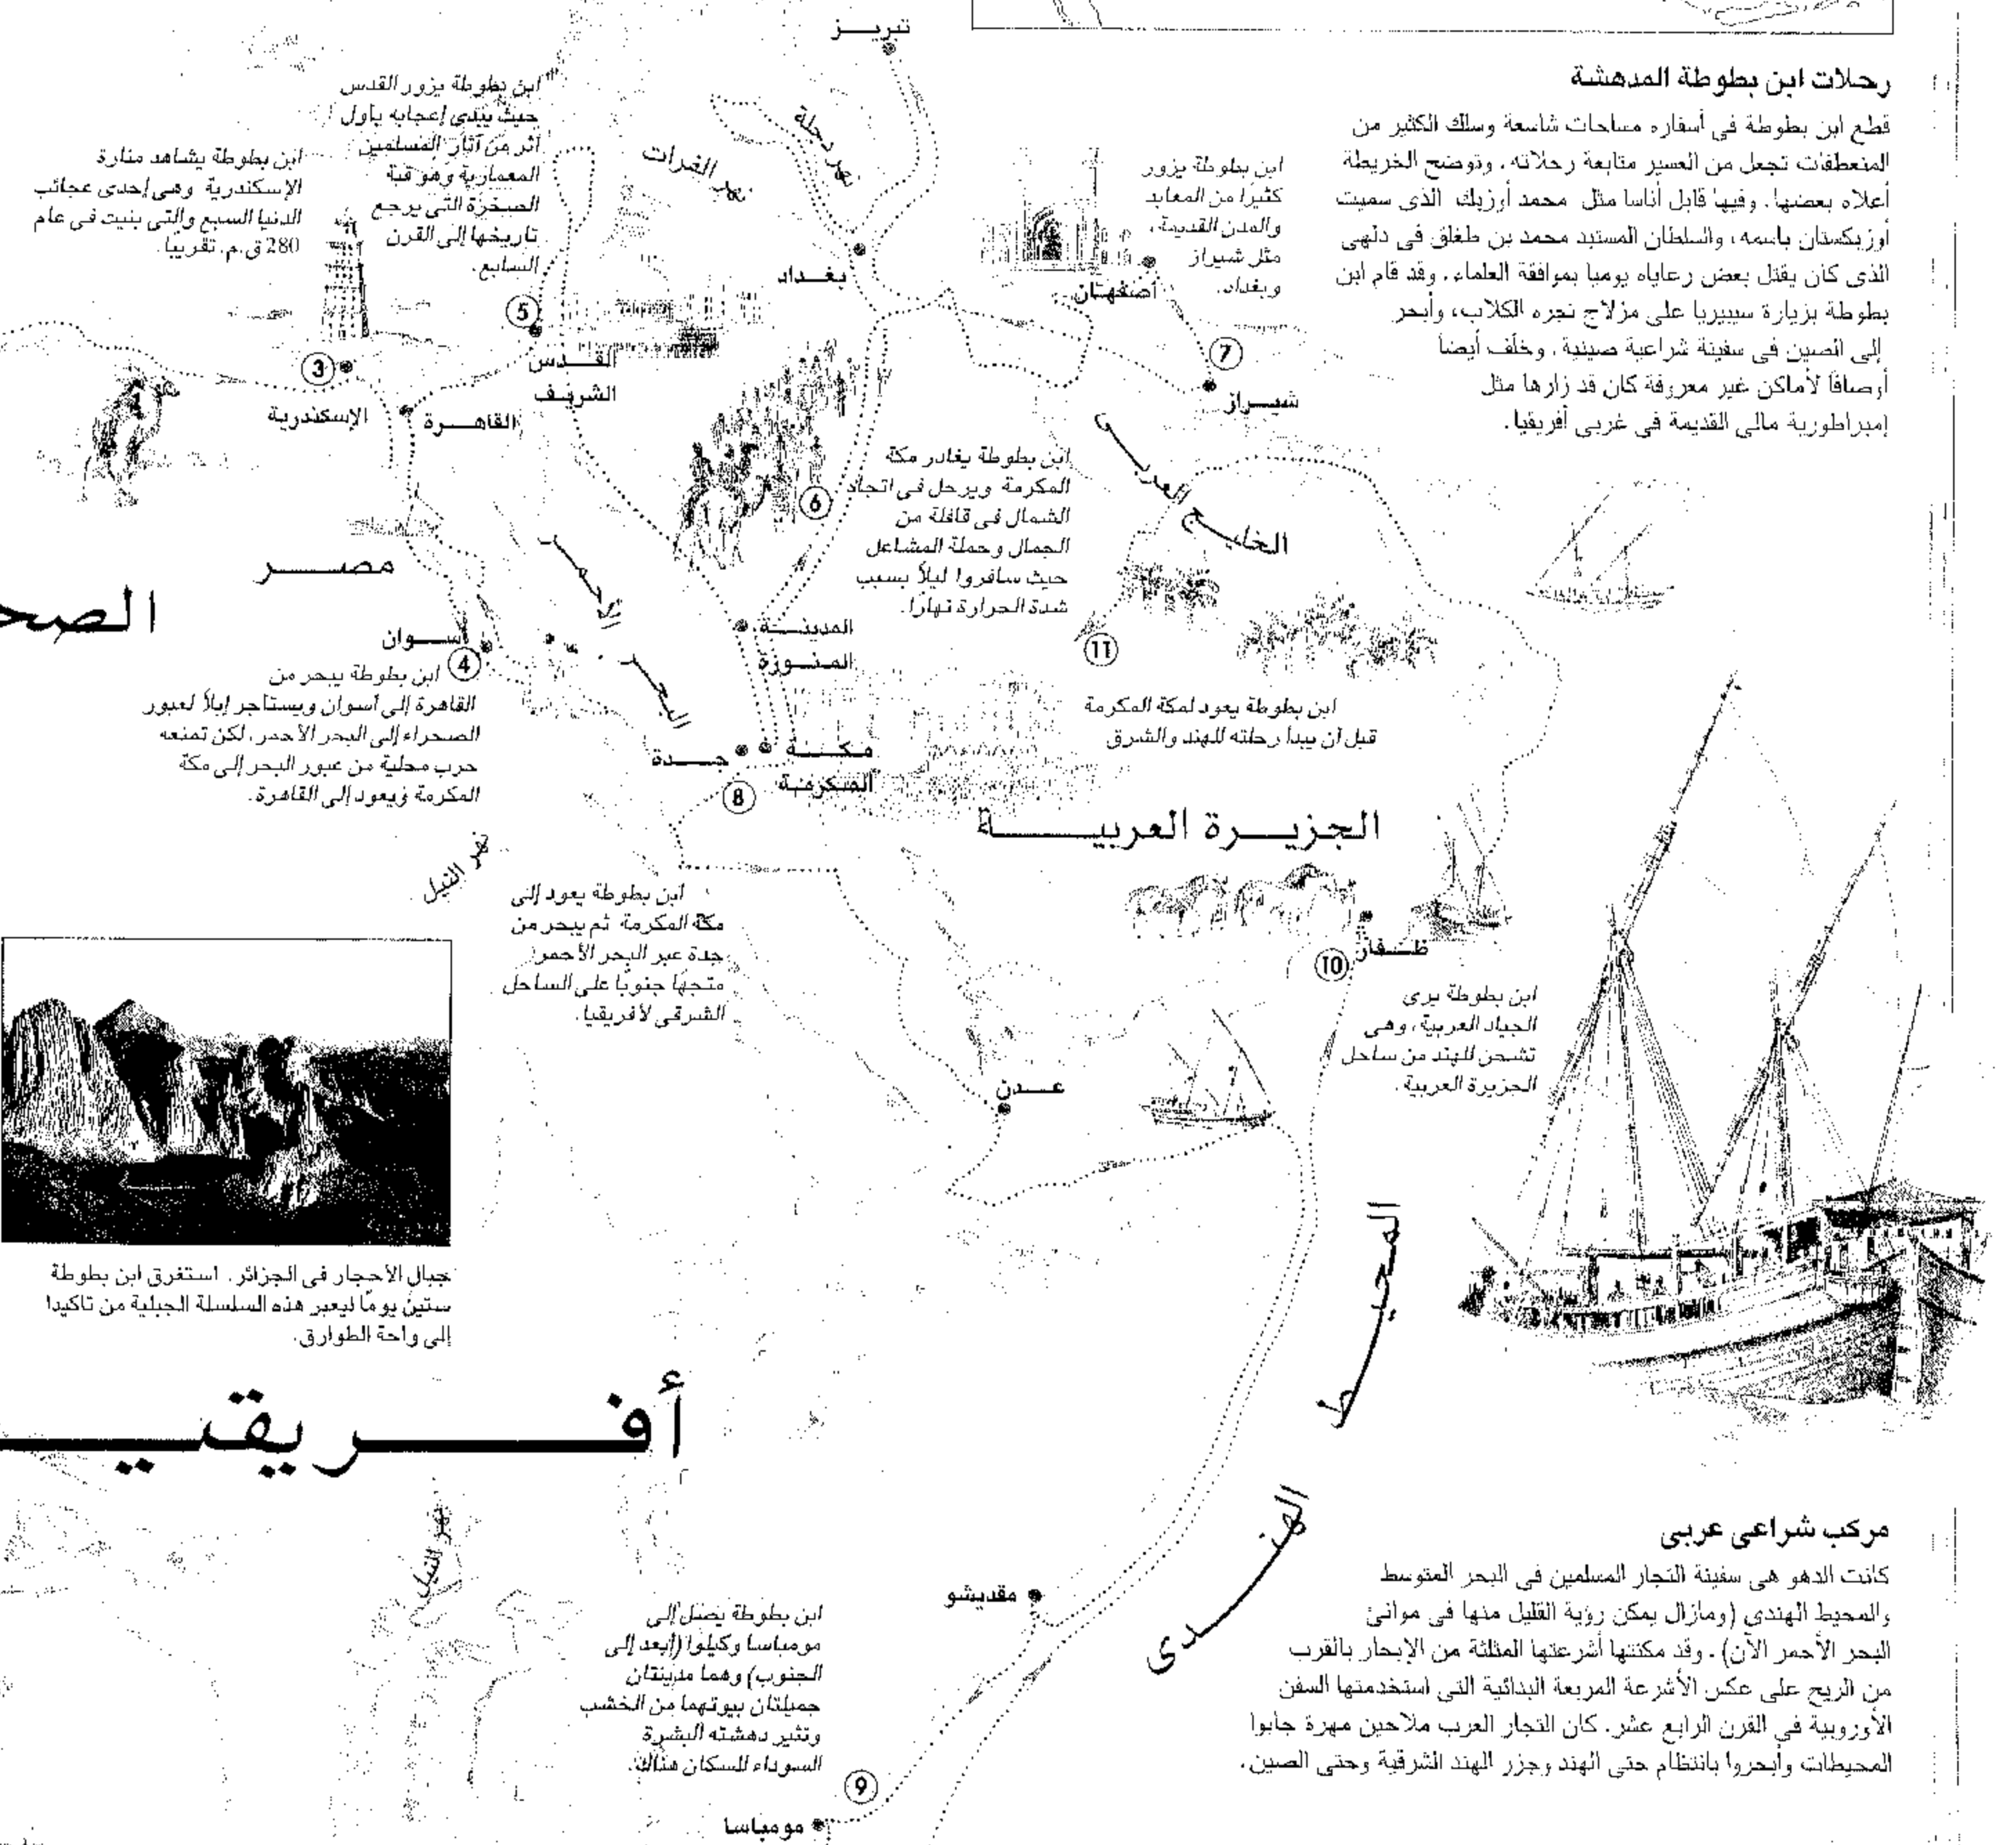 رحلات ابن بطوطة المدهشة
قطع ابن بطوطة فى أسفاره مساحات شاسعة وسلك الكثير من
المنعطفات تجعل من العسير متابعة رحلاته. وتوضح الخريطة
أعلاه بعضها. وفيها قابل أناسا مثل محمد أوزبك الذى سميت
أوزبكستان باسمه، والسلطان المستبد محمد بن طغلق فى دلهى
الذى كان يقتل بعض رعاياه يوميا بموافقة العلماء. وقد قام ابن
بطوطة بزيارة سيبيريا على مزلاج تجره الكلاب، وأبحر
إلى الصين فى سفينة شراعية صينية. وخلف أيضا
أوصافا لأماكن غير معروفة كان قد زارها مثل
إمبراطورية مالى القديمة فى غربى أفريقيا.
تبريز
نهر دجلة
نهر الفرات
بغداد
أصفهان
شيراز
ابن بطوطة يزور
كثيرا من المعابد
والمدن القديمة،
مثل شيراز
وبغداد.
7
ابن بطوطة يزور القدس
حيث يبدى إعجابه بأول
أثر من آثار المسلمين
المعمارية وهو قبة
الصخرة التى يرجع
تاريخها إلى القرن
السابع.
5
القدس
الشريف
ابن بطوطة يشاهد منارة
الإسكندرية وهى إحدى عجائب
الدنيا السبع والتى بنيت فى عام
280 ق.م. تقريبًا.
3
الإسكندرية
القاهرة
ابن بطوطة يغادر مكة
المكرمة ويرحل فى اتجاه
الشمال فى قافلة من
الجمال وحملة المشاعل
حيث سافروا ليلاً بسبب
شدة الحرارة نهارًا.
6
الخليج العربى
مصر
الصح
البحر الأحمر
أسوان
4
ابن بطوطة يبحر من
القاهرة إلى أسوان ويستأجر إبلاً لعبور
الصحراء إلى البحر الأحمر. لكن تمنعه
حرب محلية من عبور البحر إلى مكة
المكرمة ويعود إلى القاهرة.
المدينة
المنورة
11
ابن بطوطة يعود لمكة المكرمة
قبل أن يبدأ رحلته للهند والشرق
جدة
مكة
المكرمة
8
الجزيرة العربية
نهر النيل
ابن بطوطة يعود إلى
مكة المكرمة ثم يبحر من
جدة عبر البحر الأحمر
متجهًا جنوبًا على الساحل
الشرقى لأفريقيا.
ظفار
10
ابن بطوطة يرى
الجياد العربية، وهى
تشحن للهند من ساحل
الجزيرة العربية.
عدن
جبال الأحجار فى الجزائر. استغرق ابن بطوطة
ستين يومًا ليعبر هذه السلسلة الجبلية من تاكيدا
إلى واحة الطوارق.
أفريقي
المحيط الهندى
نهر النيل
مقديشو
ابن بطوطة يصل إلى
مومباسا وكيلوا (أبعد إلى
الجنوب) وهما مدينتان
جميلتان بيوتهما من الخشب
وتثير دهشته البشرة
السوداء للسكان هناك.
9
مومباسا
مركب شراعى عربى
كانت الدهو هى سفينة التجار المسلمين فى البحر المتوسط
والمحيط الهندى (ومازال يمكن رؤية القليل منها فى موانئ
البحر الأحمر الآن). وقد مكنتها أشرعتها المثلثة من الإبحار بالقرب
من الريح على عكس الأشرعة المربعة البدائية التى استخدمتها السفن
الأوروبية فى القرن الرابع عشر. كان التجار العرب ملاحين مهرة جابوا
المحيطات وأبحروا بانتظام حتى الهند وجزر الهند الشرقية وحتى الصين.